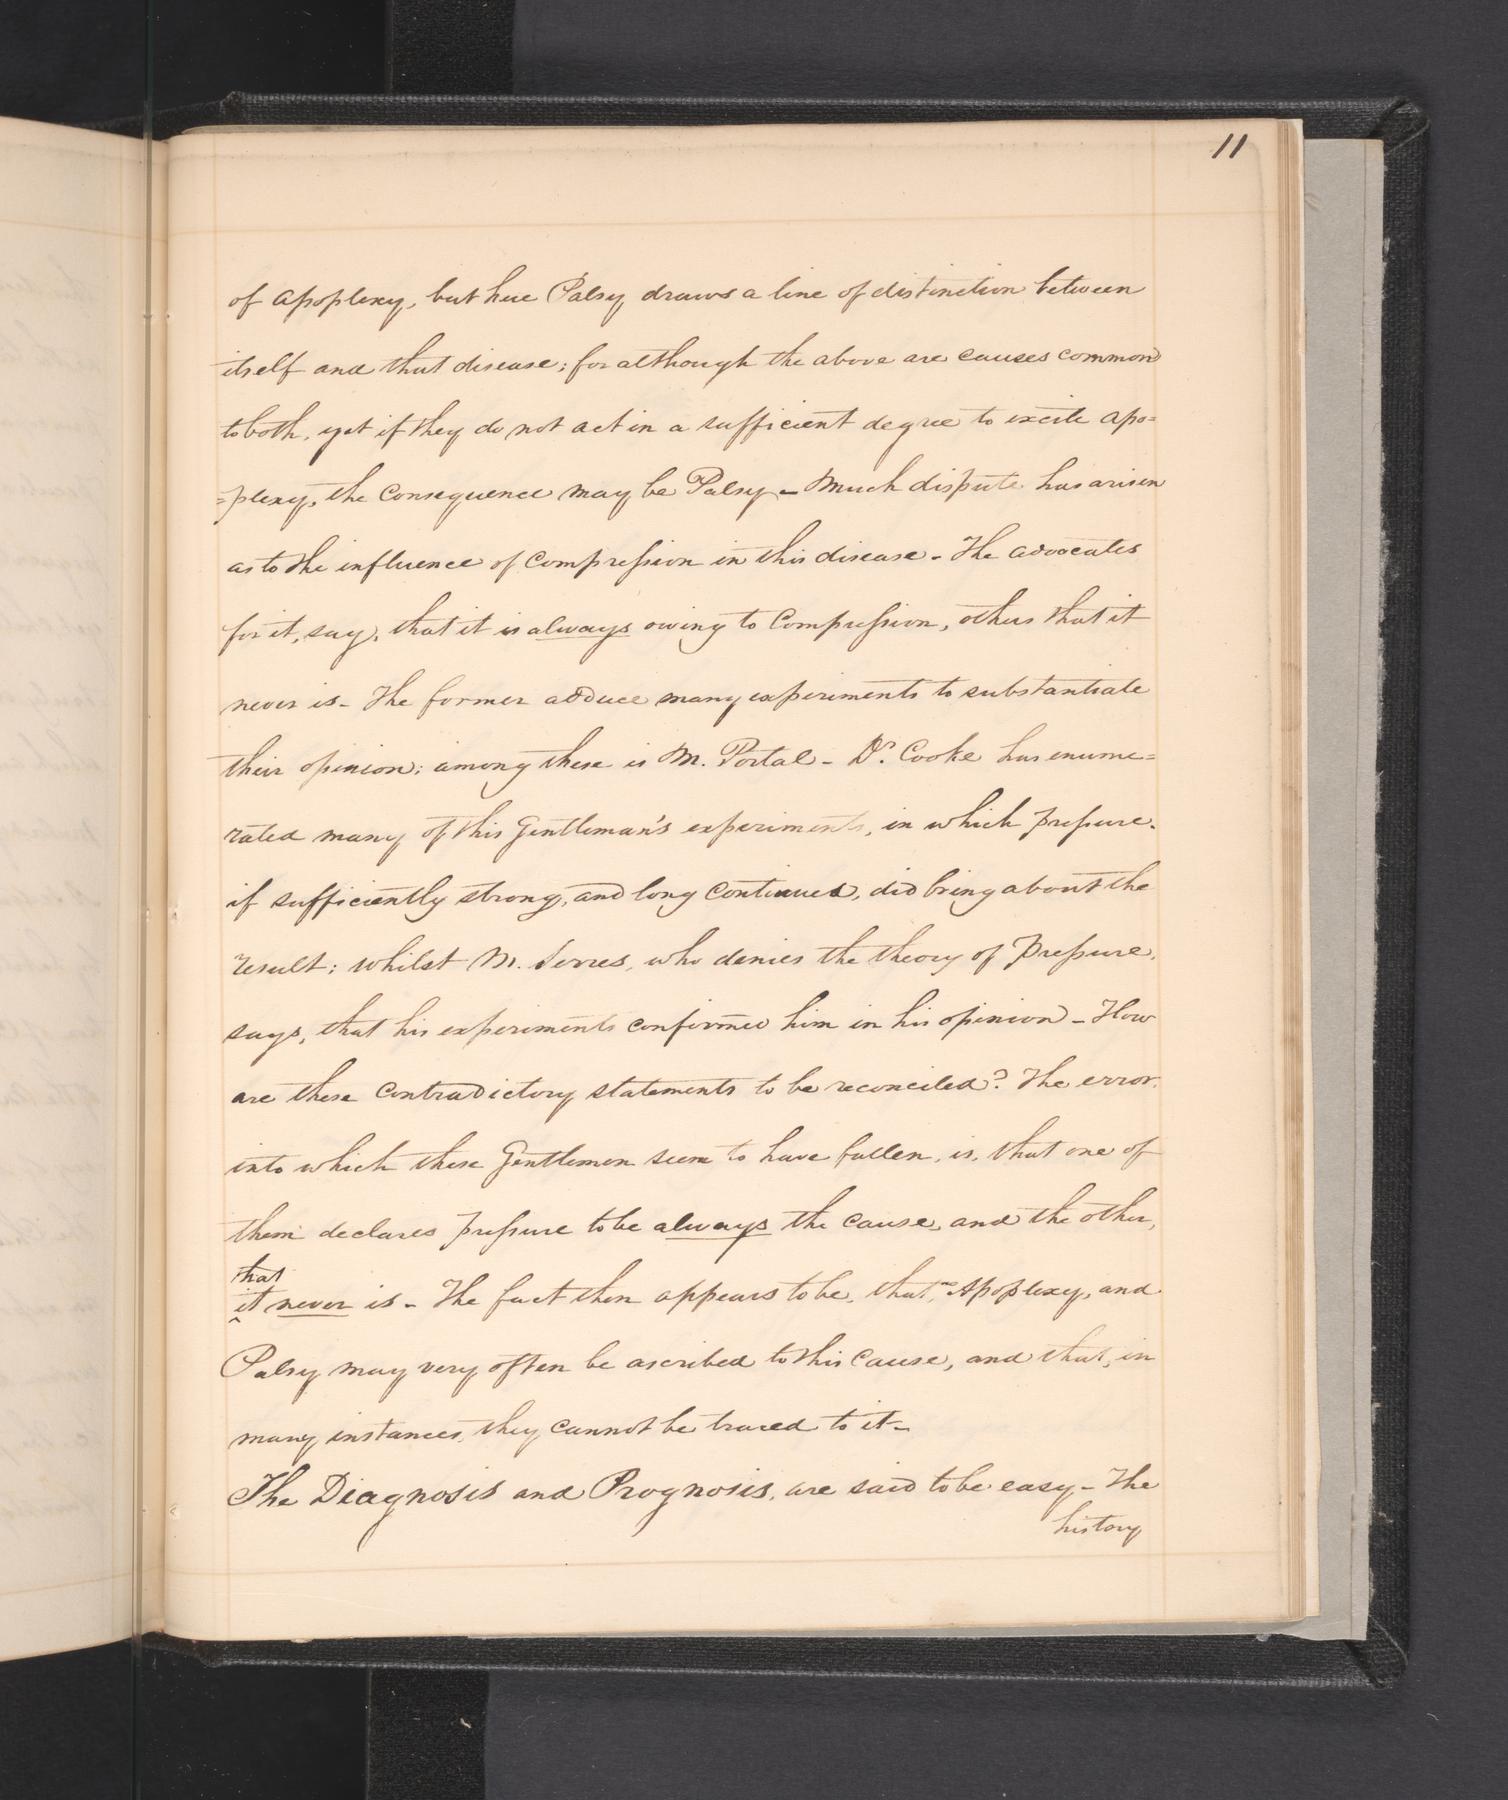 11
of Apoplexy, but here Palsy draws a line of distinction between
itself and that disease; for although the above are causes common
to both, yet if they do not act in a sufficient degree to excite apo=
=plexy, the Consequence may be Palsy - Much dispute has arisen
as to the influence of Compression in this disease - The advocates
for it, say, that it is always owing to Compression, others that it
never is - The former adduce many experiments to substantiate
their opinion; among these is M. Portal - Dr. Cooke has enume=
rated many of this Gentleman's experiments, in which pressure,
if sufficiently strong, and long continued, did bring about the
result; whilst M. Serres, who denies the theory of Pressure,
says, that his experiments confirmed him in his opinion - How
are these Contradictory statements to be reconciled? The error,
into which these Gentlemen seem to have fallen, is, that one of
them declares pressure to be always the cause, and the other,
that
it never is - The fact then appears to be, that, Apoplexy, and
Palsy may very often be ascribed to this Cause, and that, in
many instances, they cannot be traced to it -
The Diagnosis and Prognosis, are said to be easy - The
history